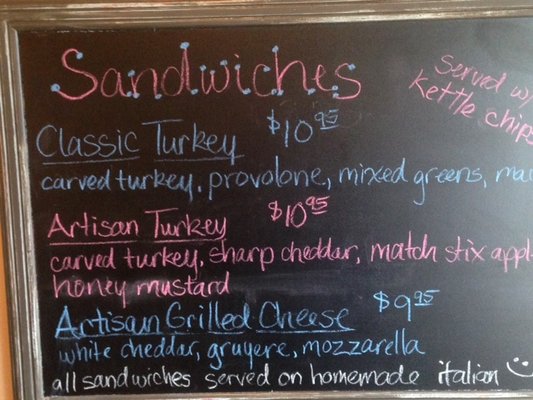 Sandwiches
Served w/
Kettle chips
Classic Turkey $10.95
carved turkey, provolone, mixed greens,
Artisan Turkey $10.95
carved turkey, sharp cheddar, match stix
honey mustard
Artisan Grilled Cheese $9.95
white cheddar, gruyere, mozzarella
all sandwiches served on homemade italian